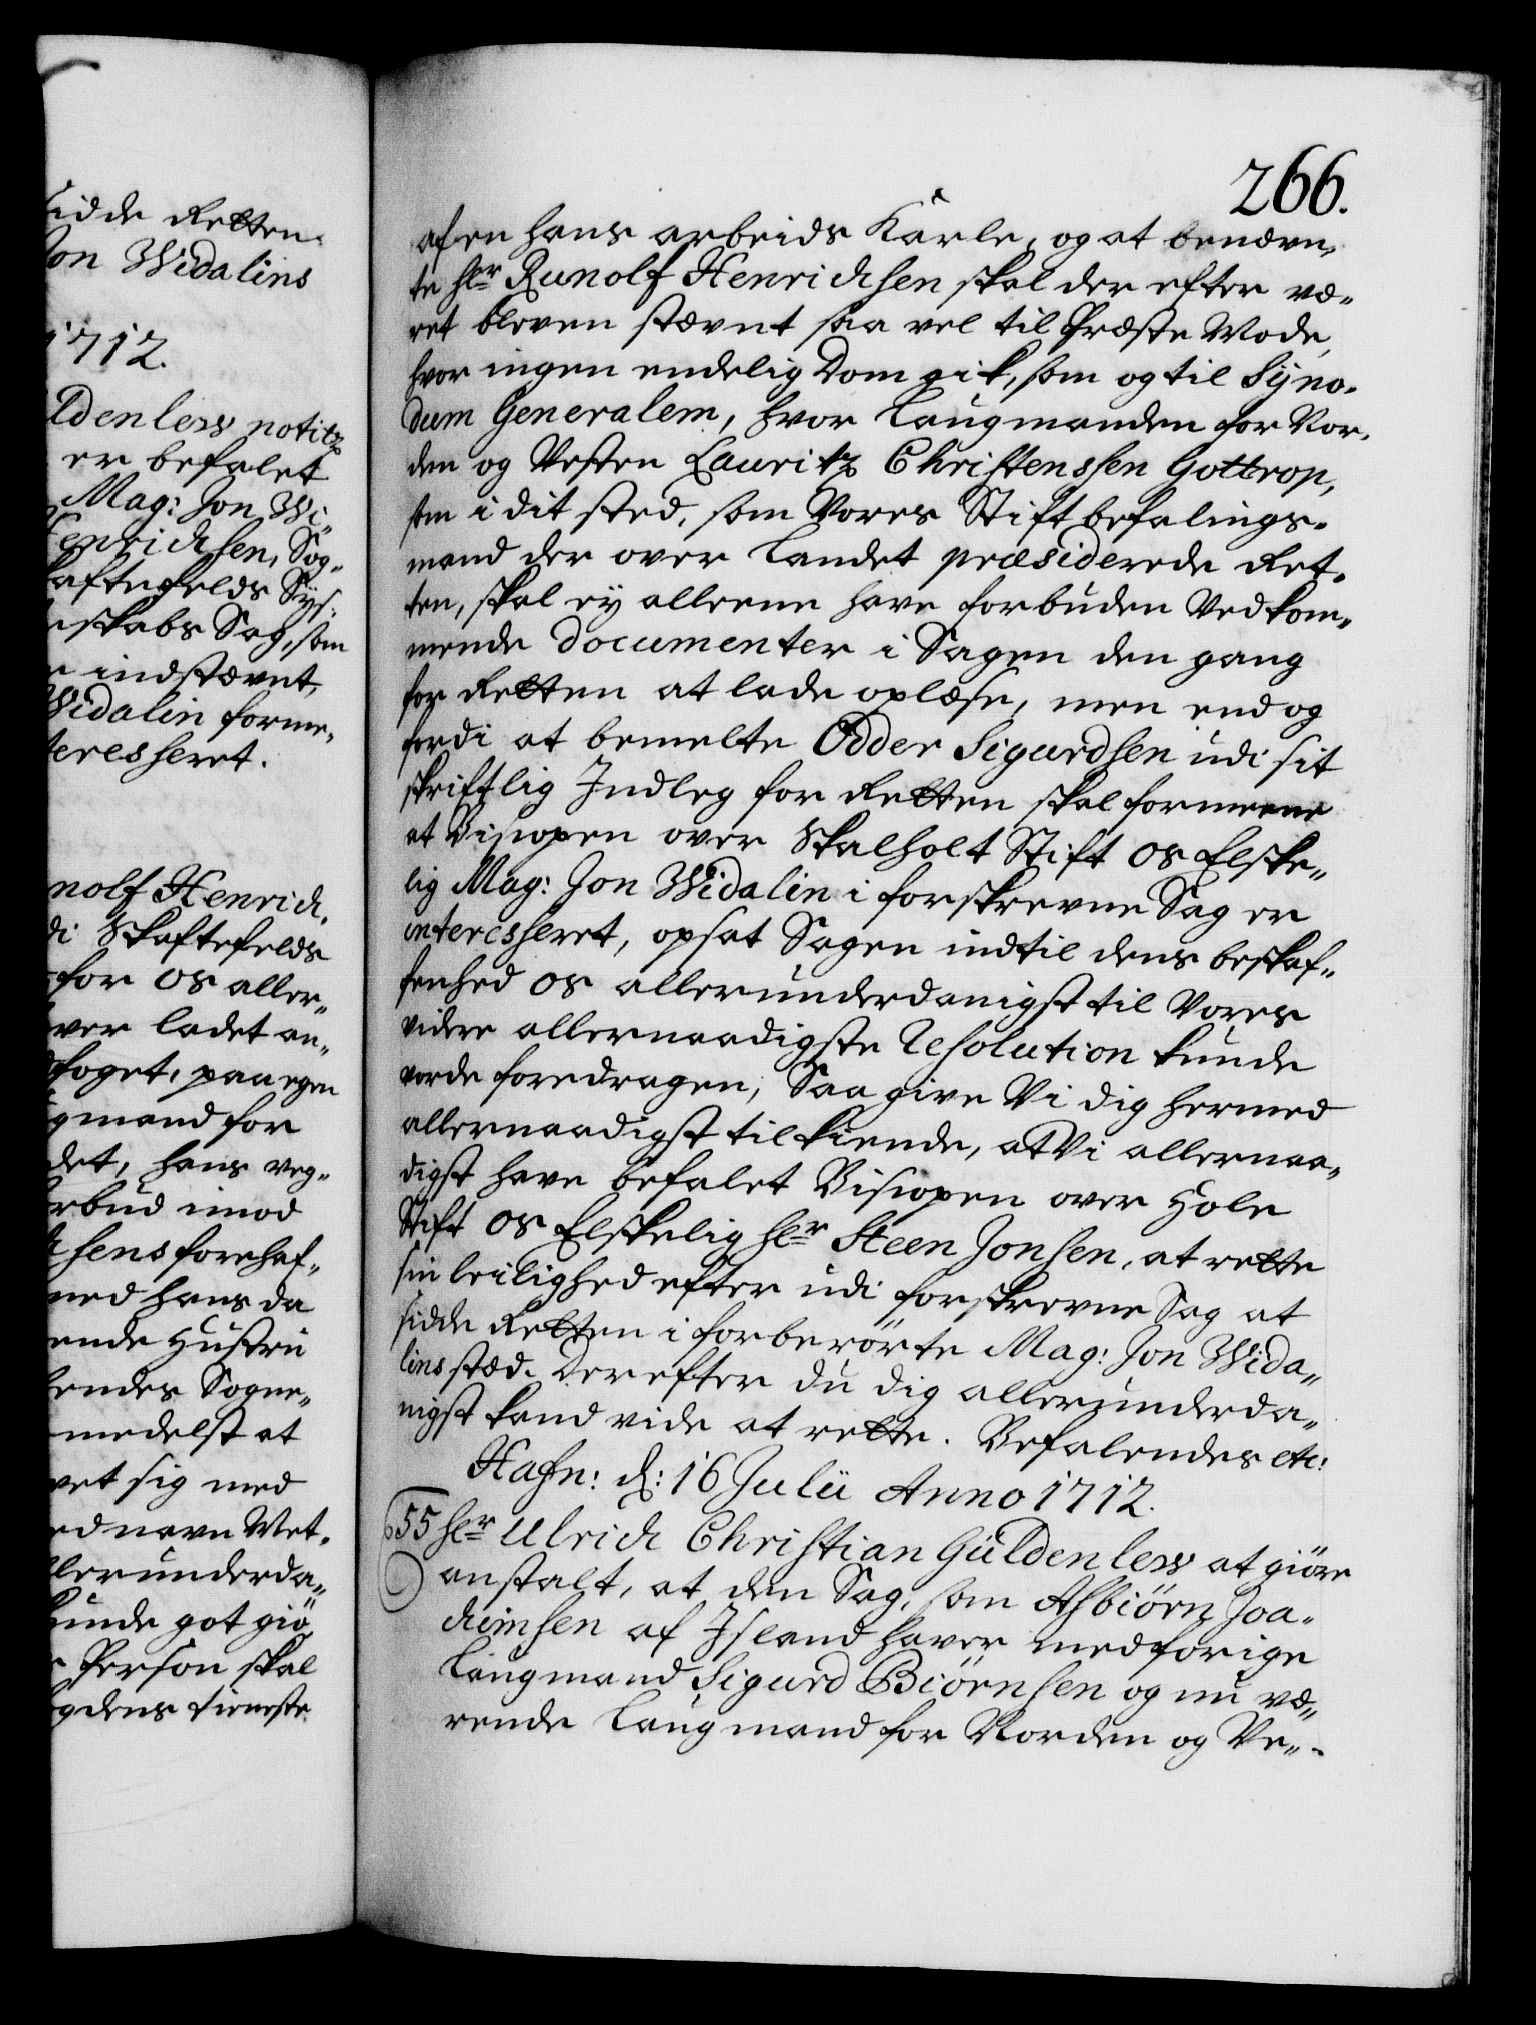 sidde Retten
Jon Widalins
1712.
ldenlew notitz
er befalet
Mag: Jon Wi„
Henrichsen, Sog„
kaftefelds Sys„
skabs Sag, som
indstævnt,
Widalin forme„
teresseret.
nolf Henrich„
di Skaftefelds
for os aller„
ver ladet an„
foget, paa egen
gmand for
det, hans veg„
rbud imod
hsens forehaf„
med hans da
ende Hustru
endes Sogne„
medelst at
vet sig med
ed navn Wet„
llerunderda„
kunde got giö
Person skal
gdens tieneste
266.
af en hans arbeids Karle, og at benævn„
te Hr Runolf Henrichsen skal der efter væ„
ret bleven stævnt saa vel til Præste Mode,
hvor ingen endelig Dom gik, som og til Syno„
dum Generalem, hvor Laugmanden for Nor„
den og Vesten Lauritz Christenssen Gottrop,
som i dit sted, som Vores Stiftbefalings„
mand der over Landet præsiderede Ret„
ten, skal ey alleene have forbuden Vedkom„
mende documenter i Sagen den gang
for Retten at lade oplæse, men endog
fordi at bemelte Odder Sigurdsen udi sit
skriftlig Indleg for Retten skal formeene
at Bispen over Skalholt Stift os Elske„
lig Mag: Jon Widalin i forskrevne Sag er
interesseret, opsat Sagen indtil dens beskaf„
fenhed os allerunderdanigst til Vores
videre allernaadigste Resolution kunde
vorde foredragen; Saa give Vi dig hermed
allernaadigst tilkiende, at Vi allernaa„
digst have befalet Bispen over Hole
Stift os Elskelig Hr Steen Jonsen, at rette
sin leilighed efter udi forskrevne Sag at
sidde Retten i forberörte Mag: Jon Wida„
lins stæd. Derefter du dig allerunderda„
nigst kand vide at rette. Befalendes etc:
Hafn: d: 16 Julii Anno 1712.
55 Hr Ulrich Christian Güldenlew at giöre
anstalt, at den Sag, som Asbiörn Joa„
chimsen af Island haver med forige
Laugmand Sigurd Biörnsen og nu væ„
rende Laugmand for Norden og Ve„